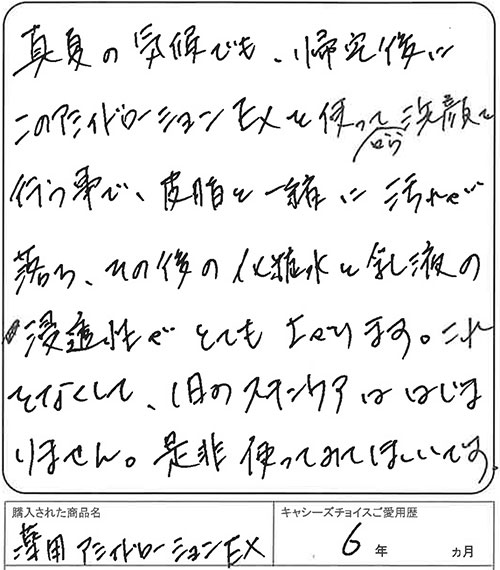 真夏の気候でも、帰宅後に
このアシィドローションEXを使ってから洗顔を
行う事で、皮脂と一緒に汚れが
落ち、その後の化粧水と乳液の
浸透性がとても上がります。これ
をなくして、1日のスキンケアははじま
りません。是非使ってみてほしいです。
購入された商品名
キャシーズチョイスご愛用歴
薬用 アシィドローションEX
6年 ヵ月